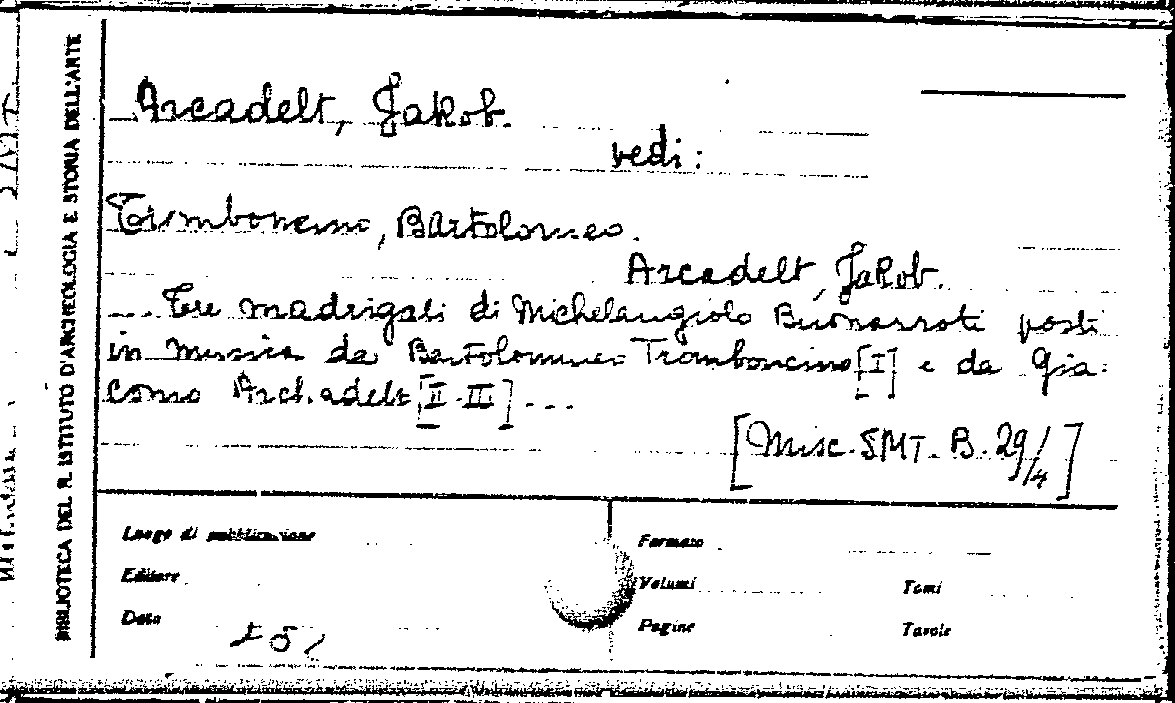 BIBLIOTECA DEL R. ISTITUTO D'ARCHEOLOGIA E STORIA DELL'ARTE
Arcadelt, Jakob.
vedi:
Tromboncino, Bartolomeo.
Arcadelt, Jakob.
... Tre madrigali di Michelangiolo Buonarroti posti
in musica da Bartolomeo Tromboncino [I] e da Gia-
como Archadelt [II-III] ...
[Misc. SMT. B. 29/4]
Luogo di pubblicazione
Formato
Editore
Volumi
Tomi
Data
Pagine
Tavole